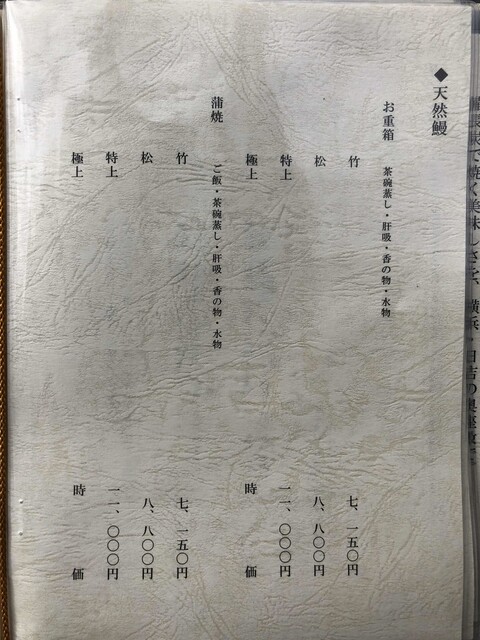 ◆天然鰻
お重箱　茶碗蒸し・肝吸・香の物・水物
竹　七、一五〇円
松　八、八〇〇円
特上　一一、〇〇〇円
極上　時価
蒲焼　ご飯・茶碗蒸し・肝吸・香の物・水物
竹　七、一五〇円
松　八、八〇〇円
特上　一一、〇〇〇円
極上　時価